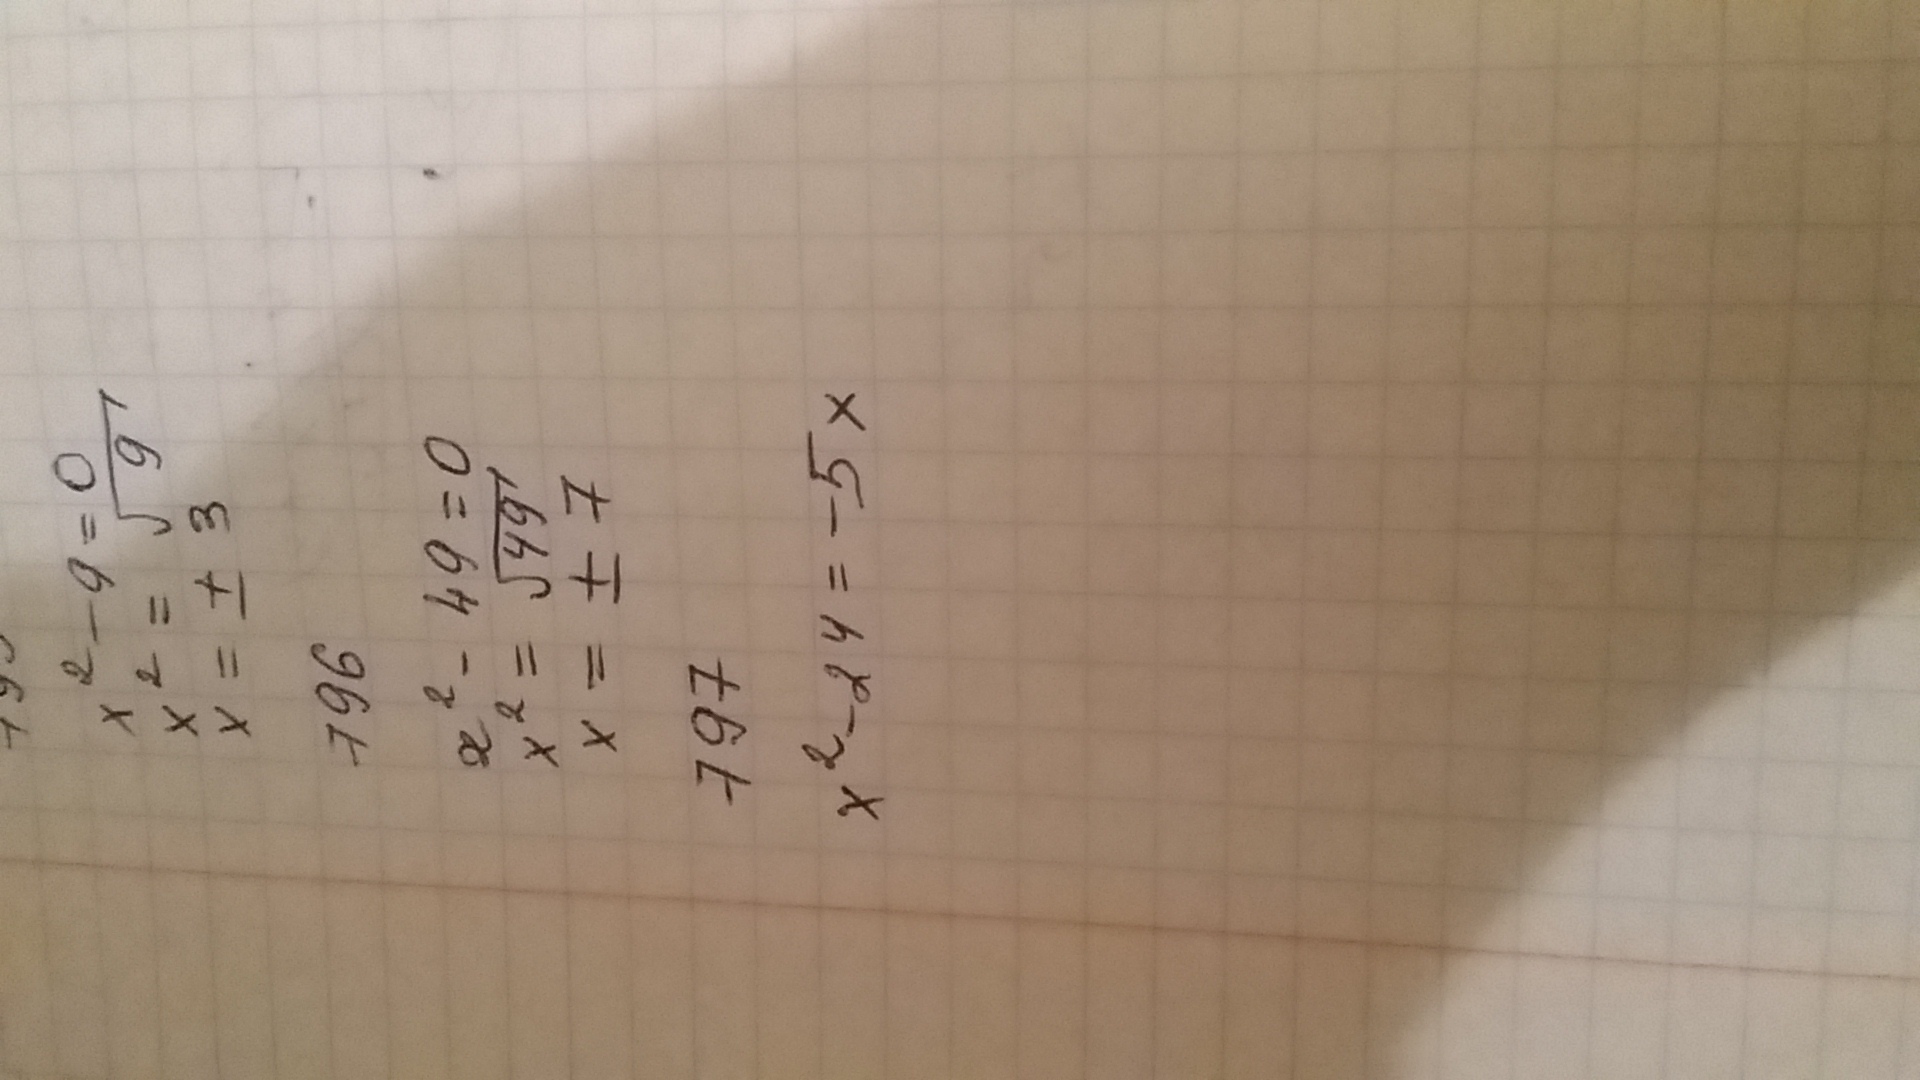 x² - 9 = 0
x² = √9
x = ± 3
796
x² - 49 = 0
x² = √49
x = ± 7
797
x² - 24 = -5x